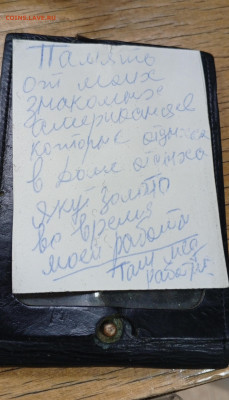 COINS.LAVE.RU
Память
от моих
знакомых
американцев
которые отдыхал
в доме отдыха
Якут золото
во время
моей работы
Там